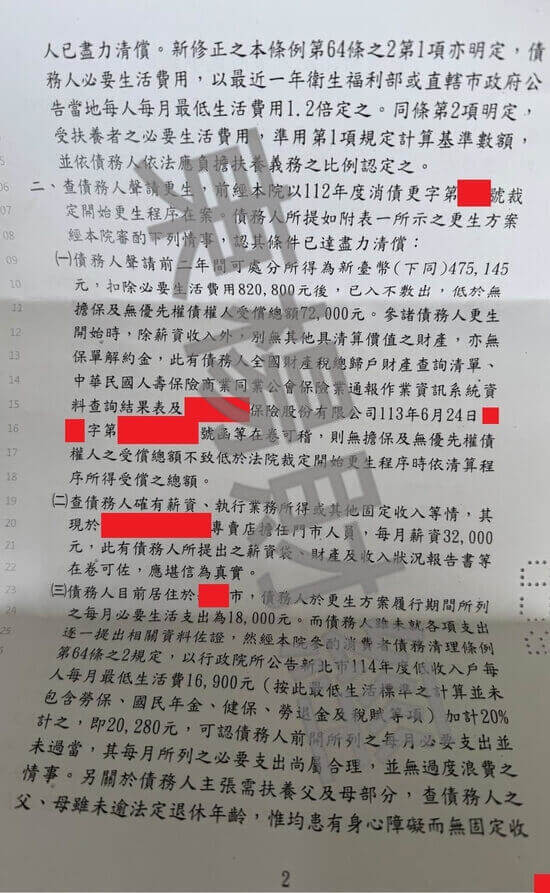 人已盡力清償。新修正之本條例第64條之2第1項亦明定，債
務人必要生活費用，以最近一年衛生福利部或直轄市政府公
告當地每人每月最低生活費用1.2倍定之。同條第2項明定，
受扶養者之必要生活費用，準用第1項規定計算基準數額，
並依債務人依法應負擔扶養義務之比例認定之。
二、查債務人聲請更生，前經本院以112年度消債更字第 號裁
定開始更生程序在案。債務人所提如附表一所示之更生方案
經本院審酌下列情事，認其條件已達盡力清償：
(一)債務人聲請前二年間可處分所得為新臺幣(下同)475,145
元，扣除必要生活費用820,800元後，已入不敷出，低於無
擔保及無優先權債權人受償總額72,000元。參諸債務人更生
開始時，除薪資收入外，別無其他具清算價值之財產，亦無
保單解約金，此有債務人全國財產稅總歸戶財產查詢清單、
中華民國人壽保險商業同業公會保險業通報作業資訊系統資
料查詢結果表及 保險股份有限公司113年6月24日
字第 號函等在卷可稽，則無擔保及無優先權債
權人之受償總額不致低於法院裁定開始更生程序時依清算程
序所得受償之總額。
(二)查債務人確有薪資、執行業務所得或其他固定收入等情，其
現於 專賣店擔任門市人員，每月薪資32,000
元，此有債務人所提出之薪資袋、財產及收入狀況報告書等
在卷可佐，應堪信為真實。
(三)債務人目前居住於 市，債務人於更生方案履行期間所列
之每月必要生活支出為18,000元。而債務人雖未就各項支出
逐一提出相關資料佐證，然經本院參酌消費者債務清理條例
第64條之2規定，以行政院所公告新北市114年度低收入戶每
人每月最低生活費16,900元（按此最低生活標準之計算並未
包含勞保、國民年金、健保、勞退金及稅賦等項）加計20%
計之，即20,280元，可認債務人前開所列之每月必要支出並
未過當，其每月所列之必要支出尚屬合理，並無過度浪費之
情事。另關於債務人主張需扶養父及母部分，查債務人之
父、母雖未逾法定退休年齡，惟均患有身心障礙而無固定收
2